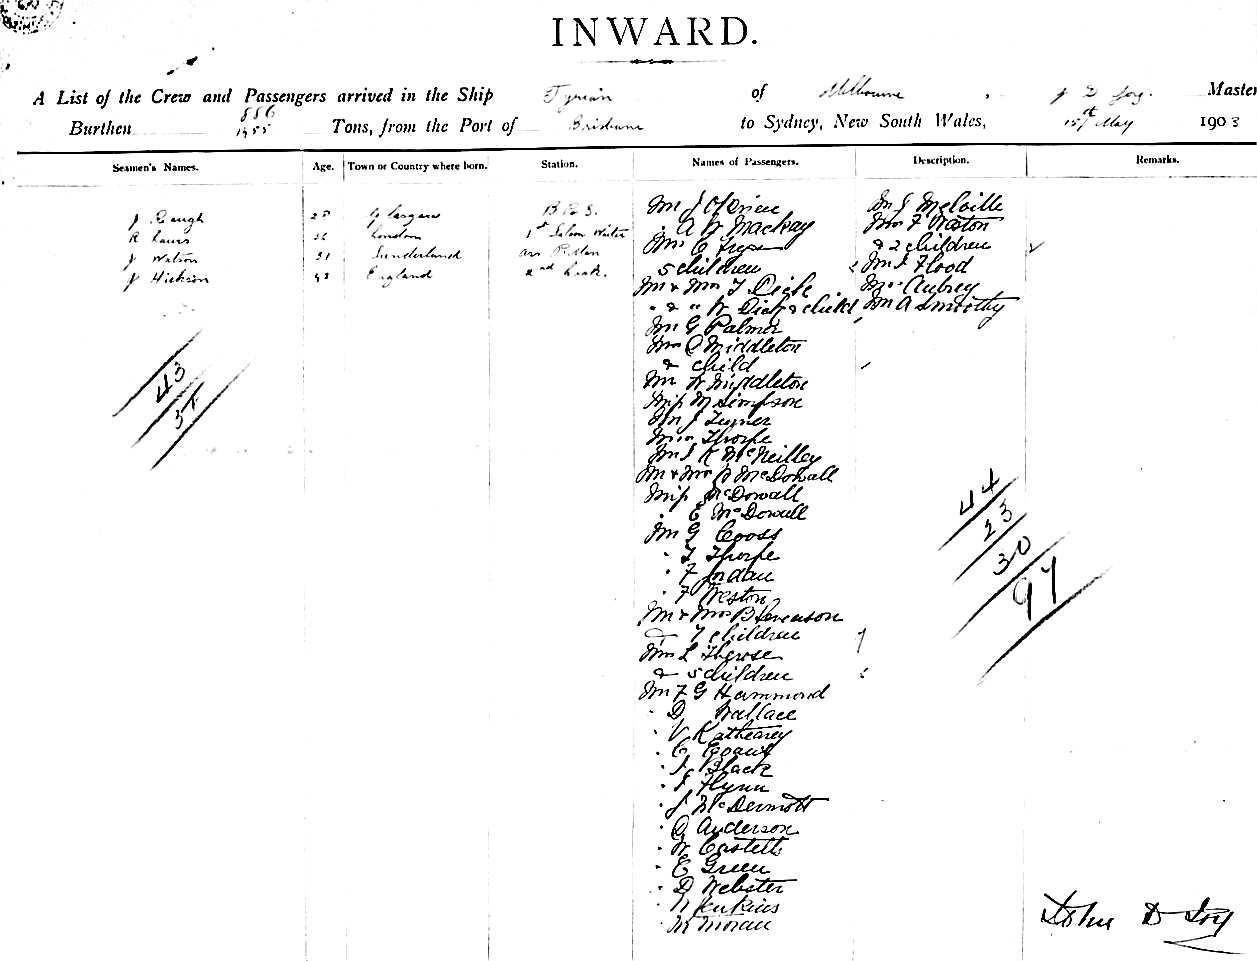 INWARD.
A List of the Crew and Passengers arrived in the Ship Tyrian of Melbourne, J D Joy. Master
Burthen 886 1455 Tons, from the Port of Brisbane to Sydney, New South Wales, 15th May 1903
Seamen's Names. Age. Town or Country where born. Station. Names of Passengers. Description. Remarks.
J Baugh 28 Glasgow B R S.
R Laurs 36 London 1st Saloon Waiter
J Watson 31 Sunderland
J Hickson 43 England 2nd Cook.
43
Mr J O'Brien
. A W Mackay
Mrs C
5 children
Mr & Mrs T Dick
" & " W Dick & child
Mr G Palmer
Mrs C Middleton
& child
Mr W Middleton
Miss M Simpson
Mr J Turner
Mrs Thorpe
Mr J K McNeilley
Mr & Mrs McDowall
Miss McDowall
. E McDowall
Mr G Cooss
. T Thorpe
. F Jordan
. F Weston
Mr & Mrs B Stevenson
& 7 children
Mrs L
& 5 children
Mr F G Hammond
. D Wallace
. V
. C
. J Black
. J Flynn
. J McDermott
. G Anderson
. W Castell
. E Green
. D Webster
. Jenkins
. M Moran
Mr J Melville
Mrs F Weston
& 2 children
Mr J Flood
Aubrey
Mr A Smoothy
44
23
30
97
John D Joy